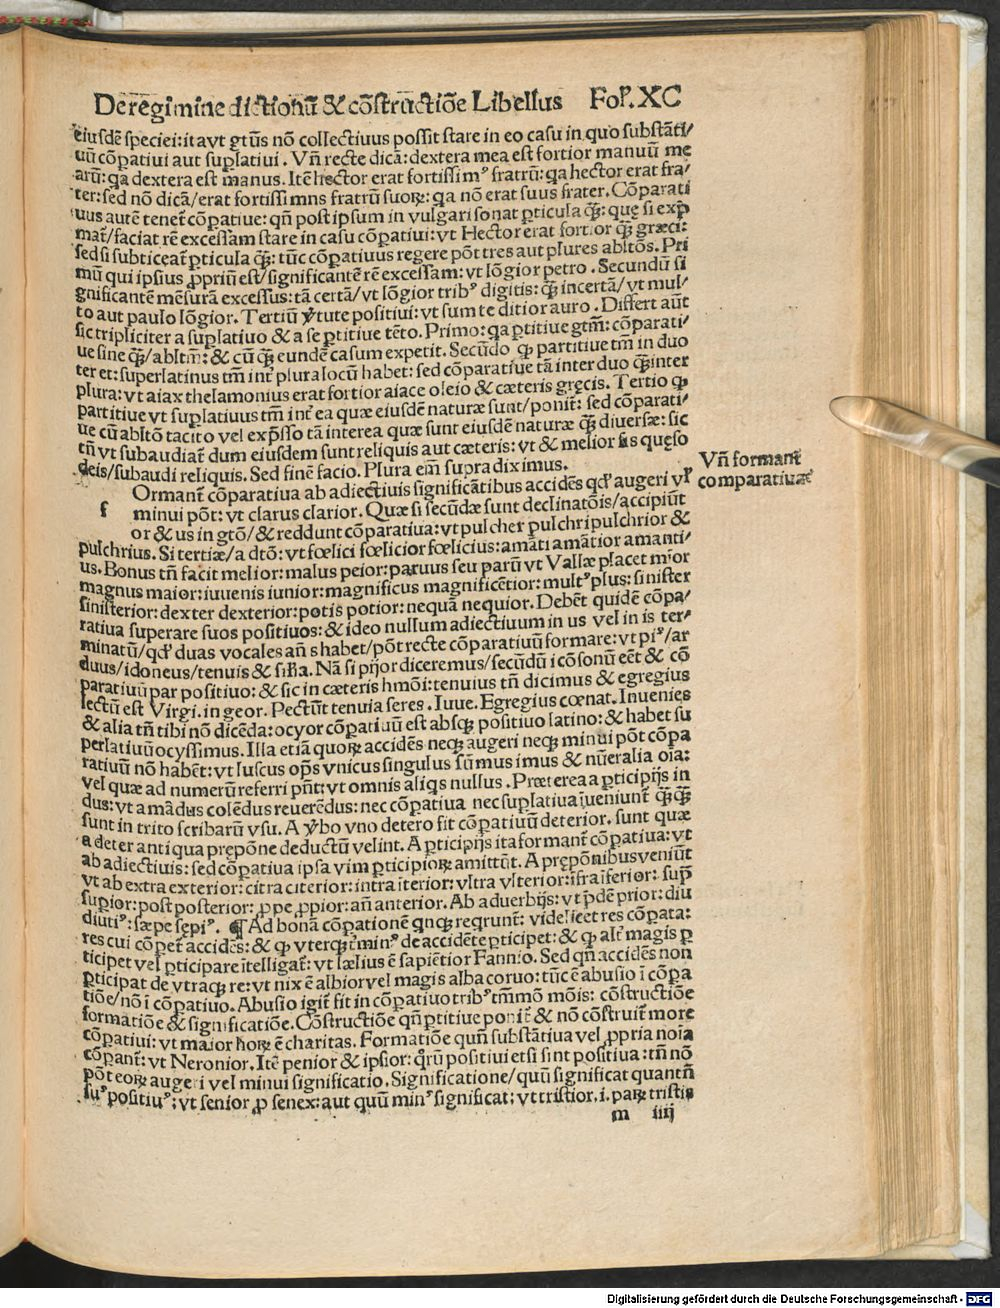 De regimine dictionū & cōstructiōe Libellus Folᵒ. XC
eiusdē speciei: it avt gt̄us nō collectiuus possit stare in eo casu in quo substāti/
uū cōpatiui aut suplatiui. Vn̄ recte dicā: dextera mea est fortior manuū me
arū: qa dextera est manus. Itē hector erat fortissimꝰ fratrū: qa hector erat fra/
ter: sed nō dicā/erat fortissimns fratrū suoꝝ: qa nō erat suus frater. Cōparati
uus autē tenet̄ cōpatiue: qn̄ post ipsum in vulgari sonat ꝑticula qꝫ̄: quę si exp̄
mat̄/faciat rē excessam stare in casu cōpatiui: vt Hector erat fortior qꝫ̄ græci:
sed si subticeat̄ ꝑticula qꝫ̄: tūc cōpatiuus regere pōt tres aut plures abltōs. Pri
mū qui ipsius ꝓpriū est/significantē rē excessam: vt lōgior petro. Secundū si
gnificantē mēsurā excessus: tā certā/vt lōgior tribꝰ digitis: qꝫ̄ incertā/vt mul/
to aut paulo lōgior. Tertiū v̓tute positiui: vt sum te ditior auro. Differt aūt
sic tripliciter a suplatiuo & a se ꝑtitiue tēto. Primo: qa ꝑtitiue gtm̄: cōparati/
ue sine qꝫ̄/abltm̄: & cū qꝫ̄ eundē casum expetit. Secūdo ꝙ partitiue tm̄ in duo
ter et: superlatinus tm̄ int̓ plura locū habet: sed cōparatiue tā inter duo qꝫ̄ inter
plura: vt aiax thelamonius erat fortior aiace oleio & cæteris gręcis. Tertio ꝙ
partitiue vt suplatiuus tm̄ int̓ ea quæ eiusdē naturæ sunt/ponit̄: sed cōparati/
ue cū abltō tacito vel exp̄sso tā interea quæ sunt eiusdē naturæ qꝫ̄ diuersæ: sic
tn̄ vt subaudiat̄ dum eiusdem sunt reliquis aut cæteris: vt & melior sis quęso
deis/subaudi reliquis. Sed finē facio. Plura em̄ supra diximus.
Vn̄ formant̄
comparatiua:
Ormant̄ cōparatiua ab adiectiuis significātibus accidēs qd̓ augeri vl̓
f minui pōt: vt clarus clarior. Quæ si secūdæ sunt declinatōis/accipiūt
or & us in gtō/& reddunt cōparatiua: vt pulcher pulchri pulchrior &
pulchrius. Si tertiæ/a dtō: vt fœlici fœlicior fœlicius: amāti amātior amanti/
us. Bonus tn̄ facit melior: malus peior: paruus seu parū vt Vallæ placet mīor
magnus maior: iuuenis iunior: magnificus magnificētior: multꝰ plus: sinister
sinisterior: dexter dexterior: potis potior: nequā nequior. Debēt quidē cōpa/
ratiua superare suos positiuos: & ideo nullum adiectiuum in us vel in is ter-
minatū/qd̓ duas vocales an̄ s habet/pōt recte cōparatiuū formare: vt piꝰ/ar
duus/idoneus/tenuis & sil̓ia. Nā si pijor diceremus/secūdū i cōsonū eēt & cō
paratiuū par positiuo: & sic in cæteris hmōi: tenuius tn̄ dicimus & egregius
lectū est Virgi. in geor. Pectūt tenuia seres. Iuue. Egregius cœnat. Inuenies
& alia tn̄ tibi nō dicēda: ocyor cōpatiuū est absqꝫ positiuo latino: & habet su
perlatiuū ocyssimus. Illa etiā quoꝝ accidēs neqꝫ augeri neqꝫ minui pōt cōpa
ratiuū nō habēt: vt luscus op̄s vnicus singulus sūmus imus & nūeralia oīa:
vel quæ ad numerū referri pn̄t: vt omnis aliqs nullus. Præterea a ꝑticipijs in
dus: vt amādus colēdus reuerēdus: nec cōpatiua nec suplatiua iueniunt̄ qꝫ̄qꝫ̄
sunt in trito scribarū vsu. A v̓bo vno detero fit cōpatiuū deterior. sunt quæ
a deter antiqua prepōne deductū velint. A ꝑticipijs ita formant̄ cōpatiua: vt
ab adiectiuis: sed cōpatiua ipsa vim ꝑticipioꝝ amittūt. A prępōnibus veniūt
vt ab extra exterior: citra citerior: intra īterior: vltra vlterior: īfra īferior: sup̄
supior: post posterior: ꝓpe ꝓpior: an̄ anterior. Ab aduerbijs: vt p̄dē prior: diu
diutiꝰ: sæpe sępiꝰ. ¶ Ad bonā cōpationē qnqꝫ reqrunt̄: videlicet res cōpata:
res cui cōpet̄ accidēs: & ꝙ vterqꝫ t̓minꝰ de accidēte ꝑticipet: & ꝙ alt̓ magis ꝑ
ticipet vel ꝑticipare ītelligat̄: vt lælius ē sapiētior Fannio. Sed qn̄ accidēs non
ꝑticipat de vtraqꝫ re: vt nix ē albior vel magis alba coruo: tūc ē abusio ī cōpa
tiōe/nō ī cōpatiuo. Abusio igit̄ fit in cōpatiuo tribꝰ tm̄mō mōis: cōstructiōe
formatiōe & significatiōe. Cōstructiōe qn̄ ꝑtitiue ponit̄ & nō cōstruit̄ more
cōpatiui: vt maior horꝝ ē charitas. Formatiōe quū substātiua vel ꝓpria noīa
cōpant̄: vt Neronior. Itē penior & ipsior: qrū positiui etsi sint positiua: tn̄ nō
pōt eoꝝ augeri vel minui significatio. Significatione/quū significat quantū
suꝰ positiuꝰ: vt senior ꝓ senex: aut quū minꝰ significat: vt tristior. i. paꝝ tristis
m iiij
Digitalisierung gefördert durch die Deutsche Forschungsgemeinschaft - DFG